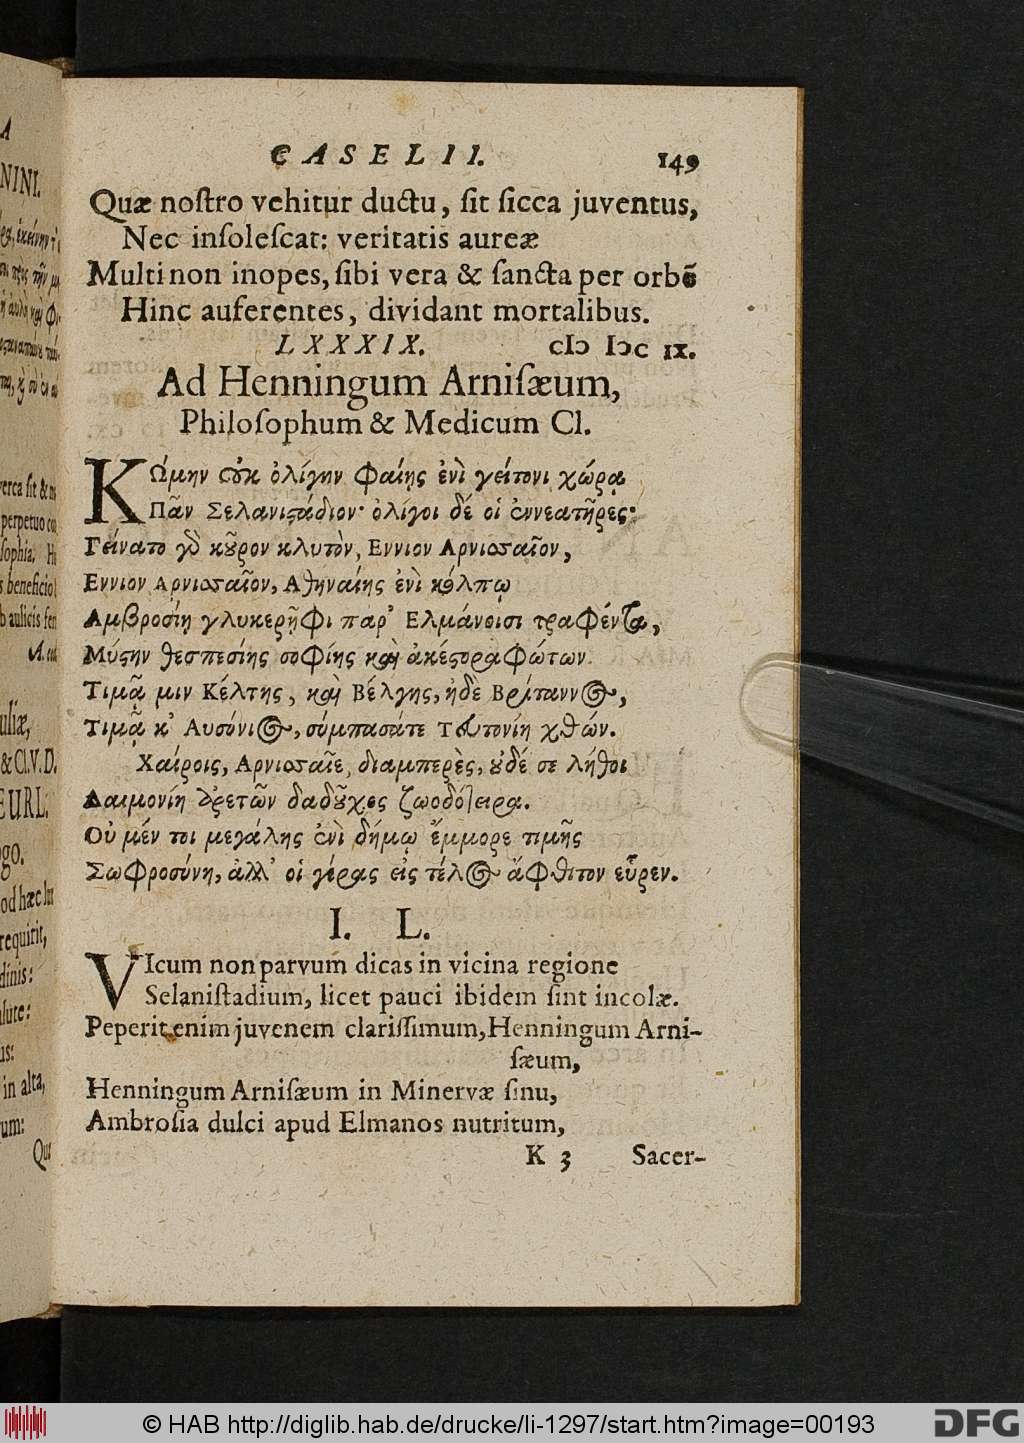 CASELII. 149
Quæ noſtro vehitur ductu, ſit ſicca juventus,
Nec inſoleſcat: veritatis aureæ
Multi non inopes, ſibi vera & ſancta per orbē
Hinc auferentes, dividant mortalibus.
LXXXIX. cIↄ Iↄc IX.
Ad Henningum Arniſæum,
Philoſophum & Medicum Cl.
ΚΩμην οὐκ ὀλίγην φαίης ἐνὶ γείτονι χώρᾳ
Πᾶν Σελανιστάδιον· ὀλίγοι δέ οἱ ἐννεατῆρες·
Γείνατο γὸ κοῦρον κλυτὸν, Εννιον Αρνισαῖον,
Εννιον Αρνισαῖον, Αθηναίης ἐνὶ κόλπῳ
Αμβροσίῃ γλυκερῇφι παρ' Ελμάνοισι τραφέντα,
Μύστην θεσπεσίης σοφίης καὶ ἀκέστορα φώτων.
Τιμᾷ μιν Κέλτης, καὶ Βέλγης, ἠδὲ Βρίταννος,
Τιμᾷ κ' Αυσόνιος, σύμπασάτε Τευτονίη χθών.
Χαίροις, Αρνισαῖε, διαμπερὲς, οὐδέ σε λήθοι
Δαιμονίη ἀρετῶν δαδοῦχος ζωοδότειρα.
Οὐ μέν τοι μεγάλης ἐνὶ δήμῳ ἔμμορε τιμῆς
Σωφροσύνη, ἀλλ' οἱ γέρας εἰς τέλος ἄφθιτον εὗρεν.
I. L.
VIcum non parvum dicas in vicina regione
Selaniſtadium, licet pauci ibidem ſint incolæ.
Peperit enim juvenem clariſſimum, Henningum Arni-
ſæum,
Henningum Arniſæum in Minervæ ſinu,
Ambroſia dulci apud Elmanos nutritum,
K 3 Sacer-
© HAB http://diglib.hab.de/drucke/li-1297/start.htm?image=00193
DFG